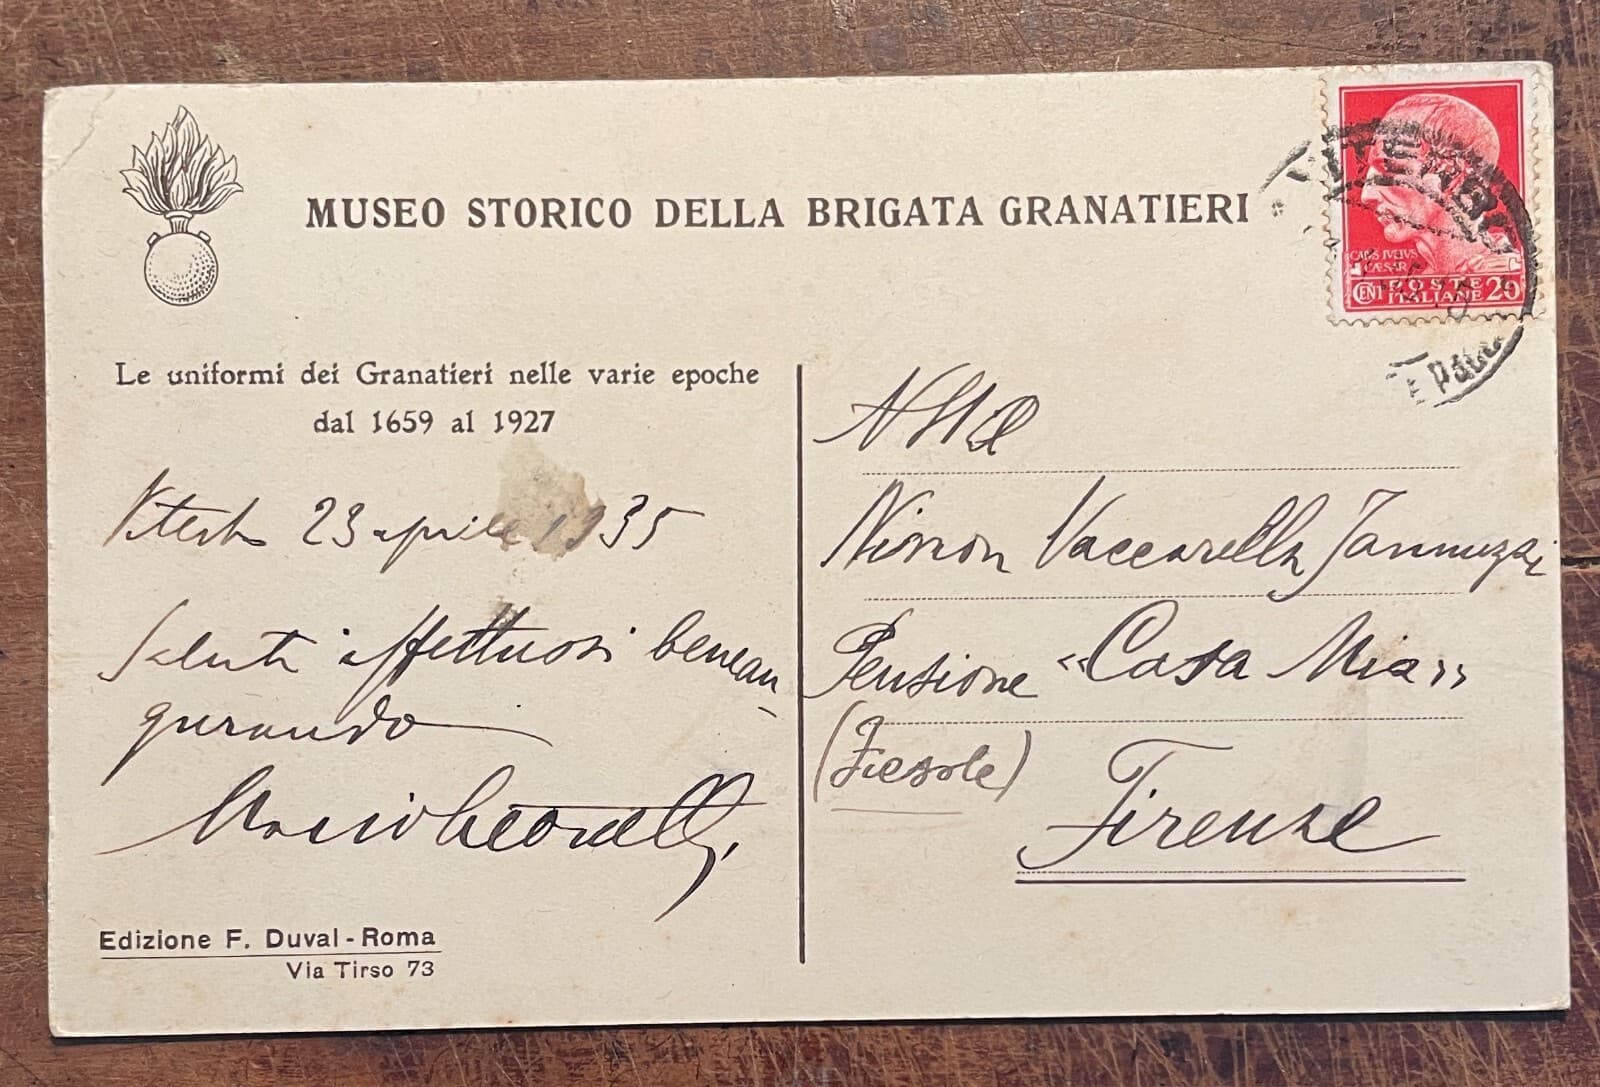 MUSEO STORICO DELLA BRIGATA GRANATIERI
Le uniformi dei Granatieri nelle varie epoche
dal 1659 al 1927
Viterbo 23 aprile 1935
Saluti affettuosi beneau-
gurando
Edizione F. Duval - Roma
Via Tirso 73
VITERBO
CAIVS IVLIVS
CÆSAR
CENT POSTE ITALIANE 20
Ninon Vaccarella Jannuzzi
Pensione «Casa Mia»
(Fiesole)
Firenze